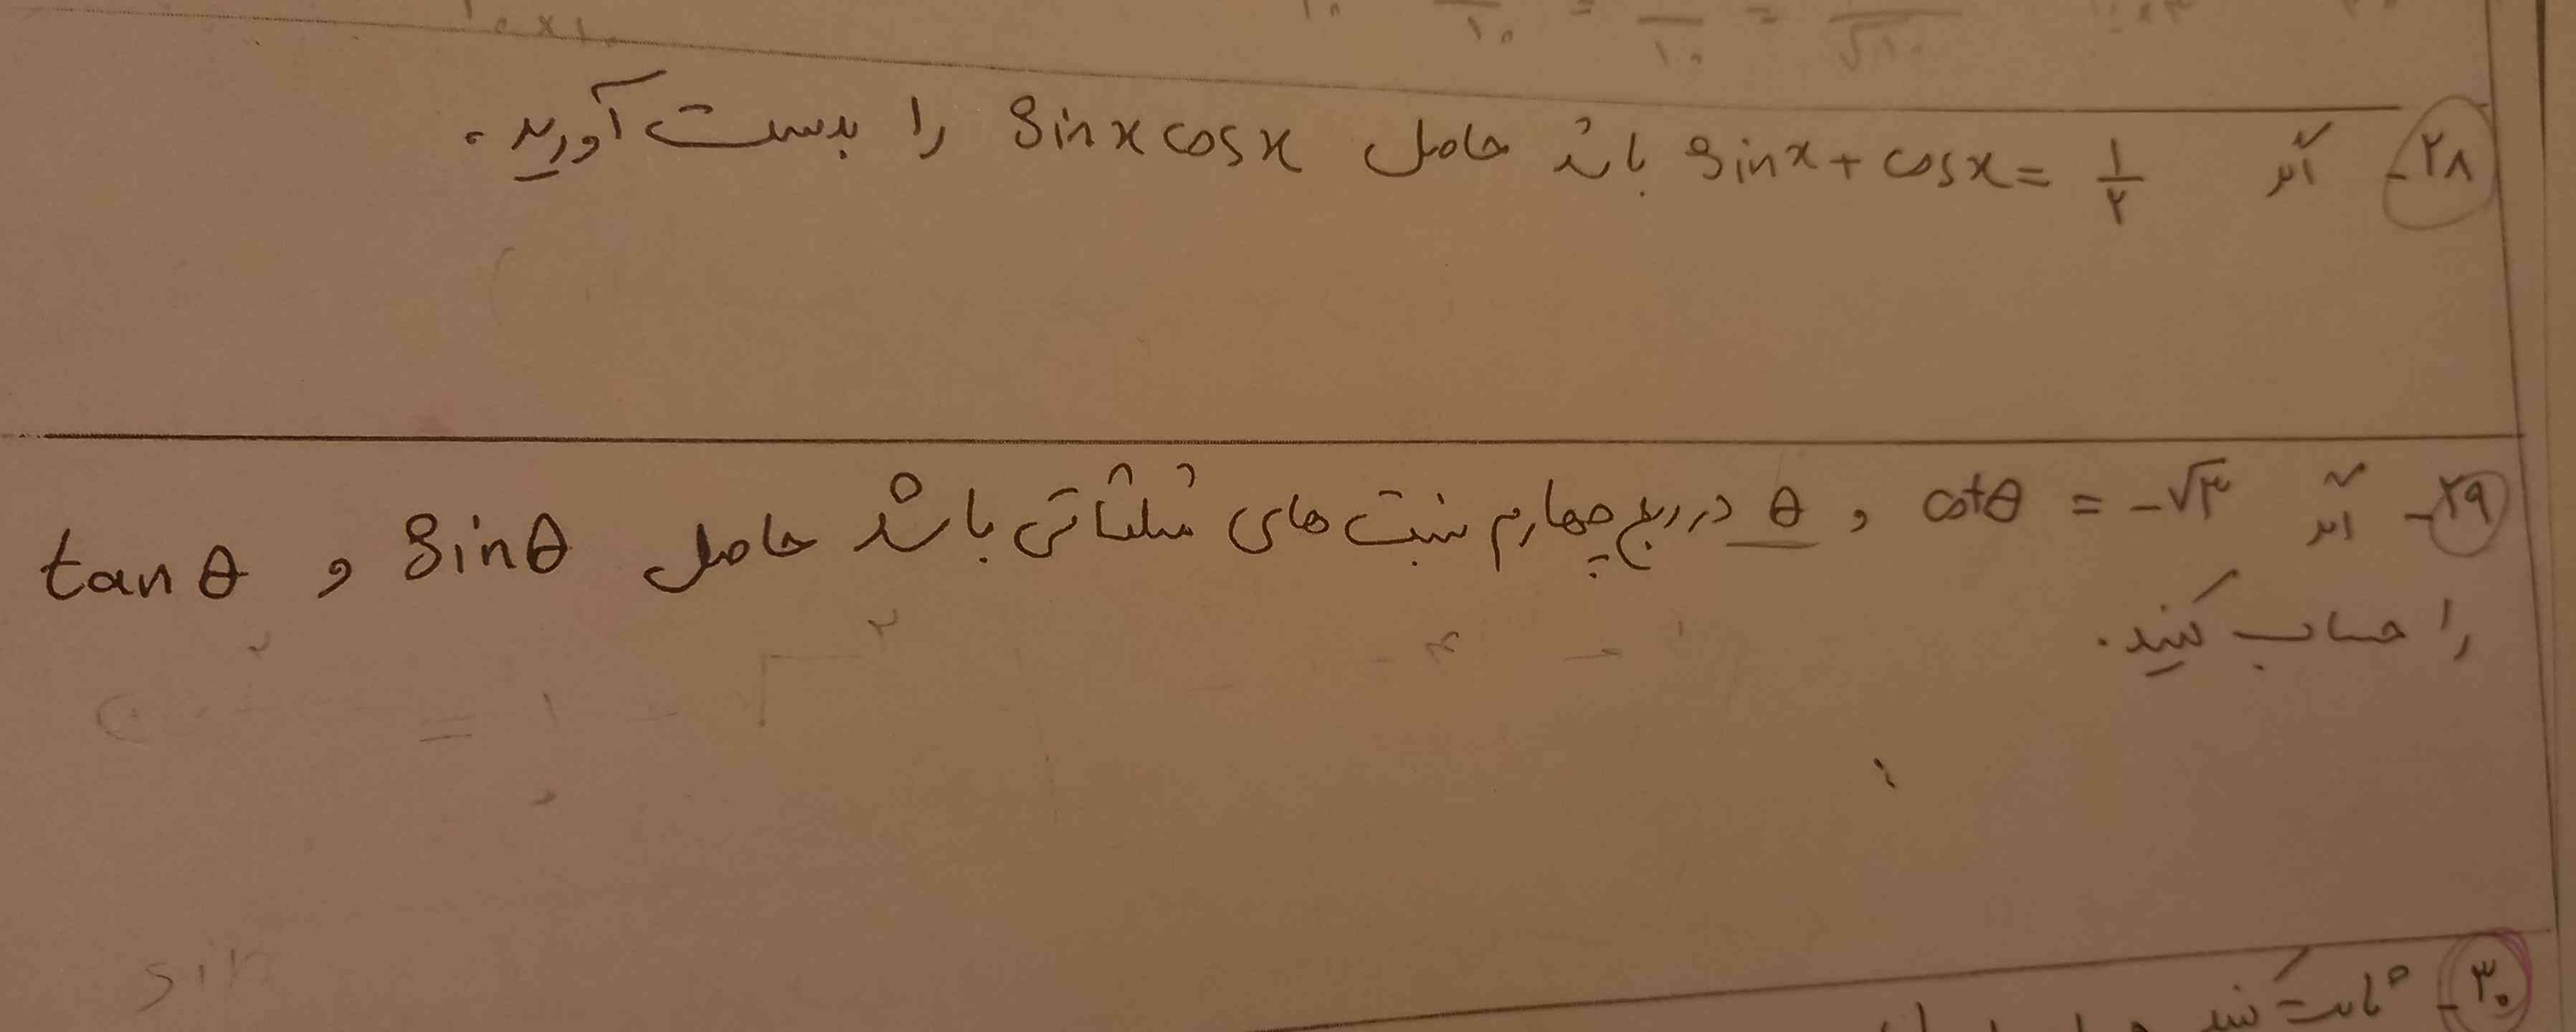 ۲۸- اگر sinx + cosx = ۱/۲ باشد حاصل sinx cosx را بدست آورید.
۲۹- اگر cotθ = -√۳ و θ در ربع چهارم نسبت های مثلثاتی باشد حاصل sinθ و tanθ
را حساب کنید.
sin
۳۰- ثابت کنید